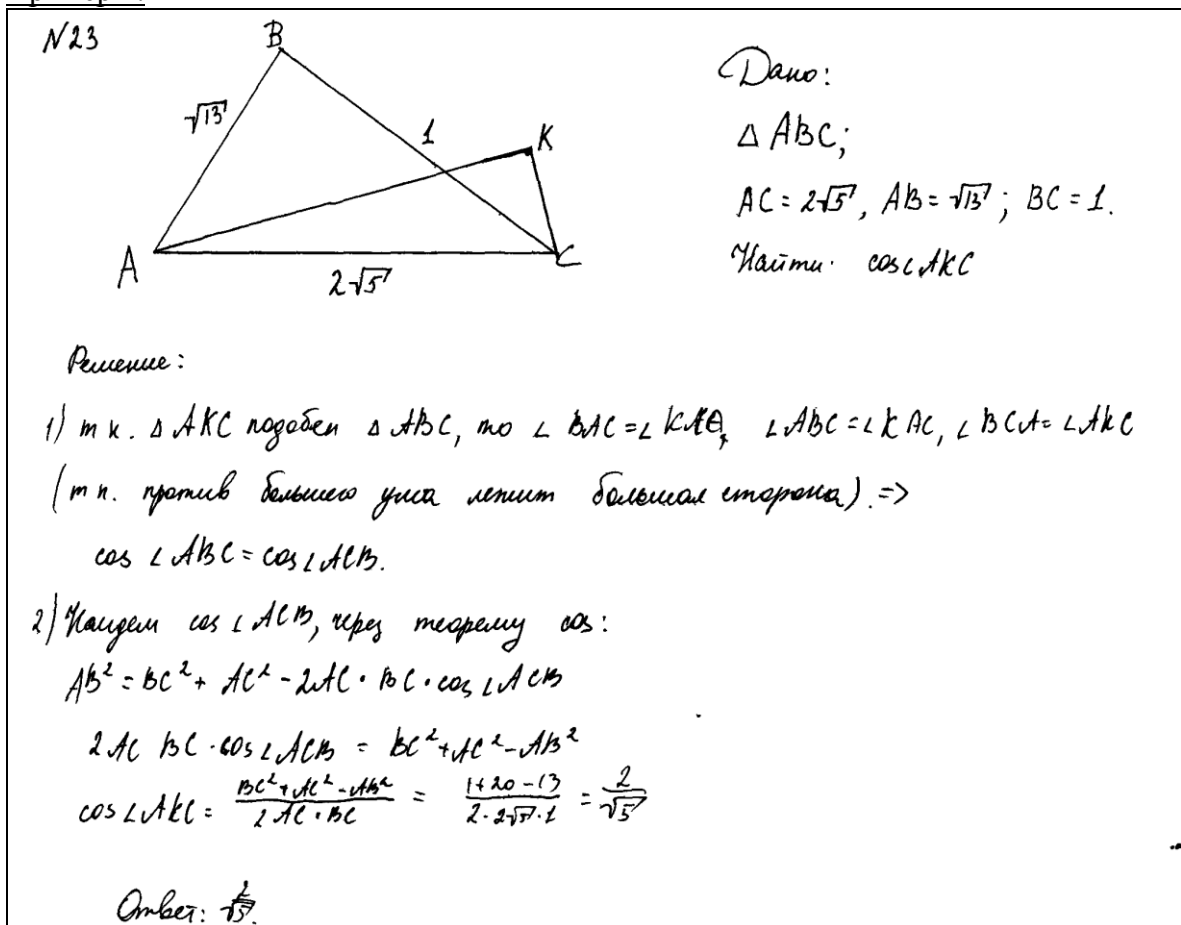 N23
B
√13
1
K
A
2√5
C
Дано:
Δ ABC;
AC = 2√5, AB = √13; BC = 1.
Найти: cos∠AKC
Решение:
1) т к. Δ AKC подобен Δ ABC, то ∠ BAC = ∠ , ∠ABC = ∠KAC, ∠BCA = ∠AKC
(т к. против большего угла лежит большая сторона) =>
cos ∠ABC = cos∠ACB.
2) Найдем cos ∠ACB, через теорему cos:
AB² = BC² + AC² - 2AC · BC · cos∠ACB
2AC BC · cos∠ACB = BC² + AC² - AB²
cos∠AKC = (BC² + AC² - AB²)/(2AC · BC) = (1+20-13)/(2·2√5·1) = 2/√5
Ответ: 2/√5.